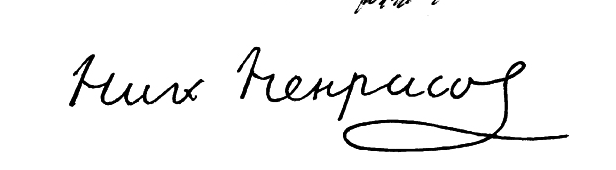 Ник Некрасов